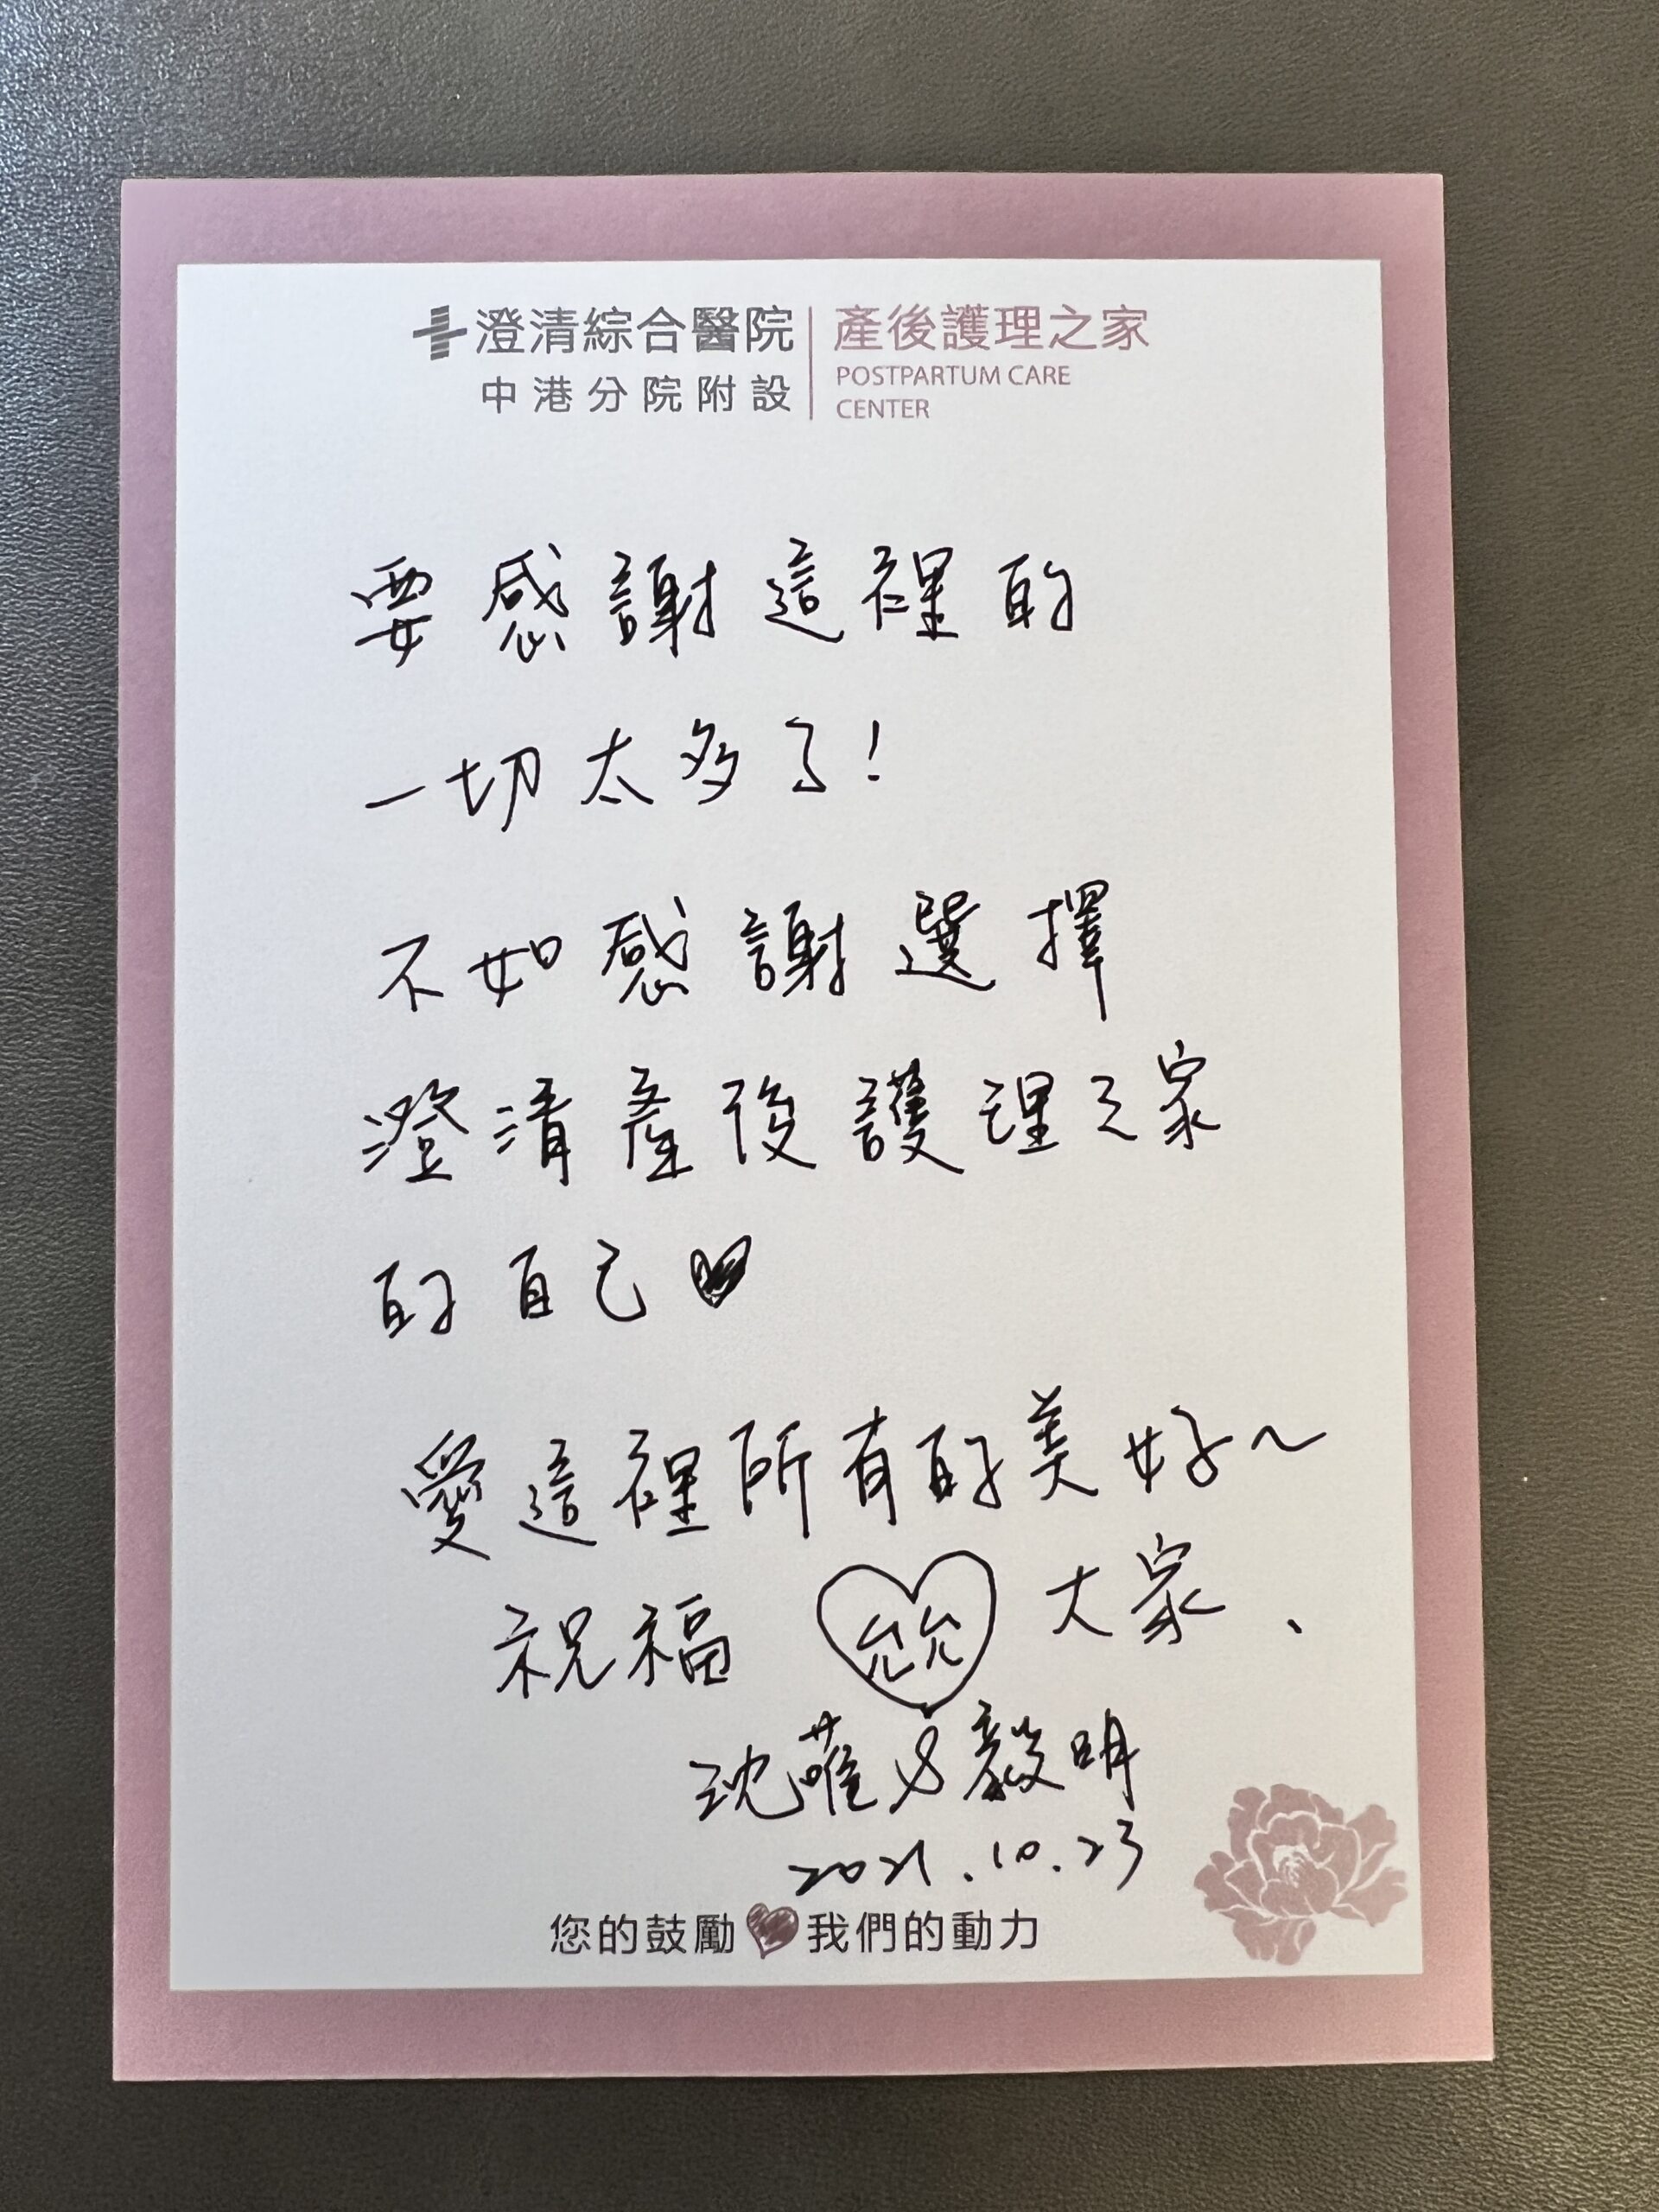 澄清綜合醫院
中港分院附設
產後護理之家
POSTPARTUM CARE
CENTER
要感謝這裡的
一切太多了!
不如感謝選擇
澄清產後護理之家
的自己
愛這裡所有的美好~
祝福 允允 大家、
沈蓷&毅明
2021.10.23
您的鼓勵 我們的動力